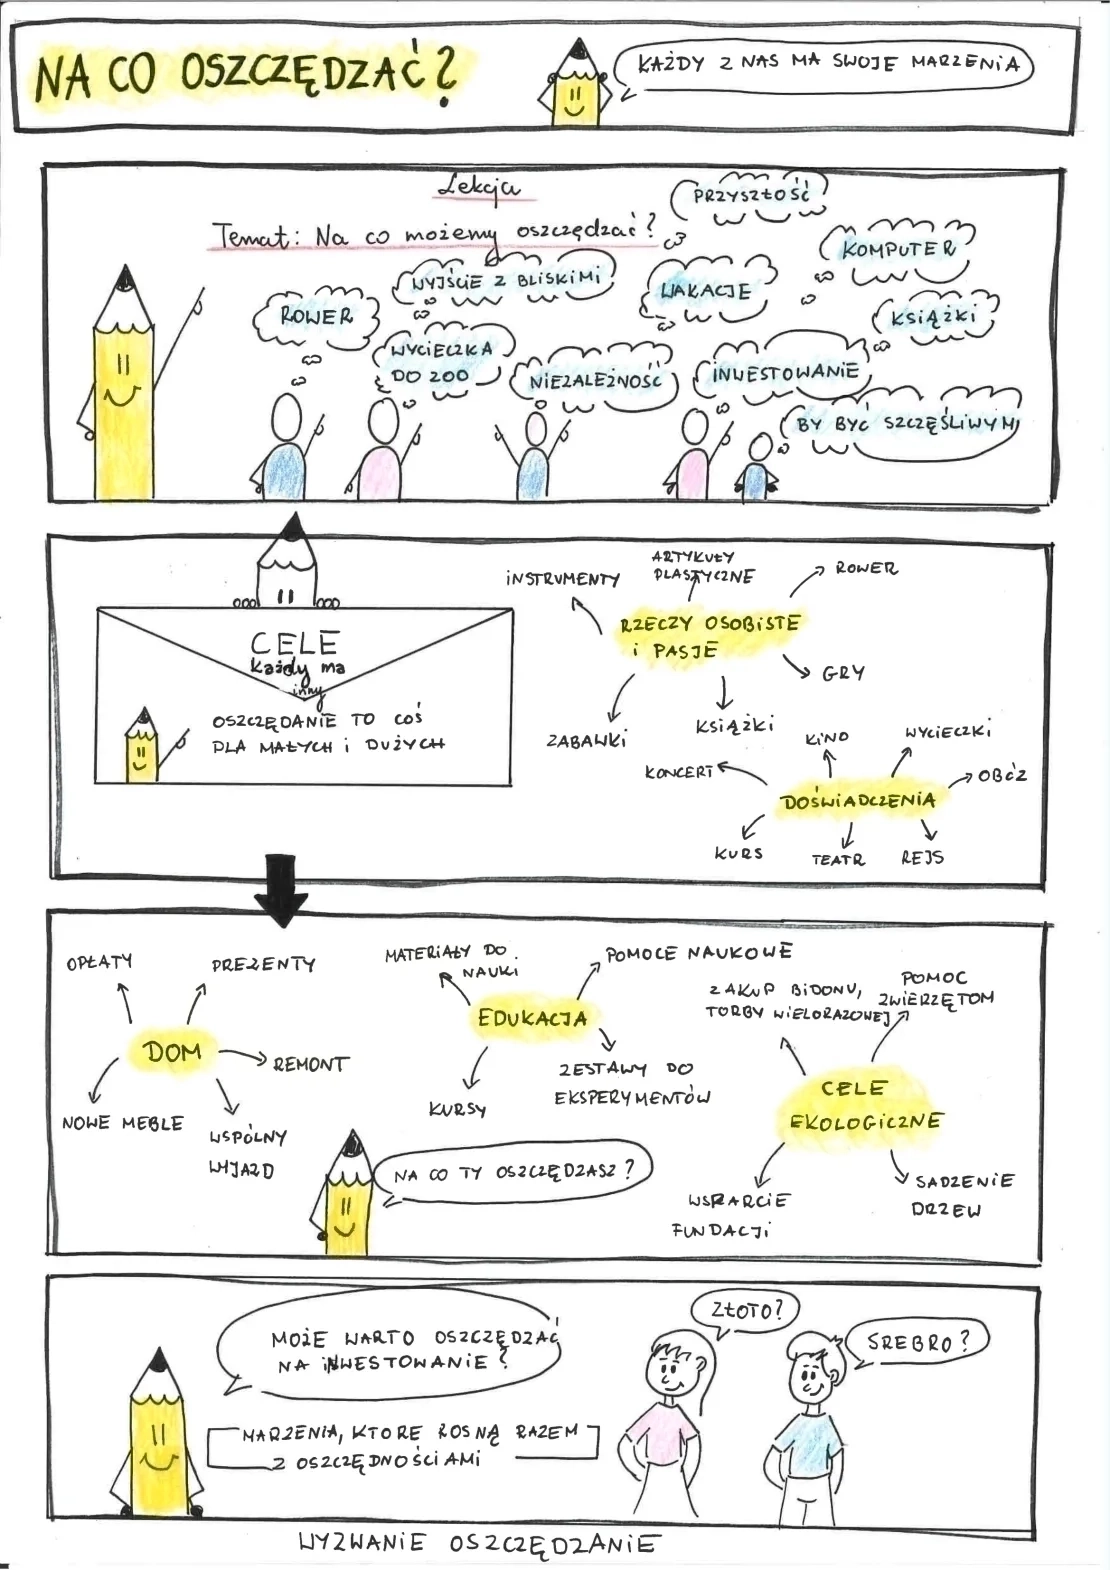 NA CO OSZCZĘDZAĆ?
KAŻDY Z NAS MA SWOJE MARZENIA
Lekcja
Temat: Na co możemy oszczędzać?
PRZYSZŁOŚĆ
KOMPUTER
WYJŚCIE Z BLISKIMI
WAKACJE
ROWER
KSIĄŻKI
WYCIECZKA
DO ZOO
NIEZALEŻNOŚĆ
INWESTOWANIE
BY BYĆ SZCZĘŚLIWYM
CELE
Każdy ma
inny
OSZCZĘDANIE TO COŚ
DLA MAŁYCH i DUŻYCH
INSTRUMENTY
ARTYKUŁY
PLASTYCZNE
ROWER
RZECZY OSOBISTE
i PASJE
GRY
ZABAWKI
KSIĄŻKI
KINO
WYCIECZKI
KONCERT
OBÓZ
DOŚWIADCZENIA
KURS
TEATR
REJS
OPŁATY
PREZENTY
DOM
REMONT
NOWE MEBLE
WSPÓLNY
WYJAZD
MATERIAŁY DO
NAUKI
POMOCE NAUKOWE
EDUKACJA
ZESTAWY DO
EKSPERYMENTÓW
KURSY
NA CO TY OSZCZĘDZASZ?
ZAKUP BIDONU,
TORBY WIELORAZOWEJ
POMOC
ZWIERZĘTOM
CELE
EKOLOGICZNE
WSPARCIE
FUNDACJI
SADZENIE
DRZEW
MOŻE WARTO OSZCZĘDZAĆ
NA INWESTOWANIE?
ZŁOTO?
SREBRO?
MARZENIA, KTÓRE ROSNĄ RAZEM
Z OSZCZĘDNOŚCIAMI
WYZWANIE OSZCZĘDZANIE